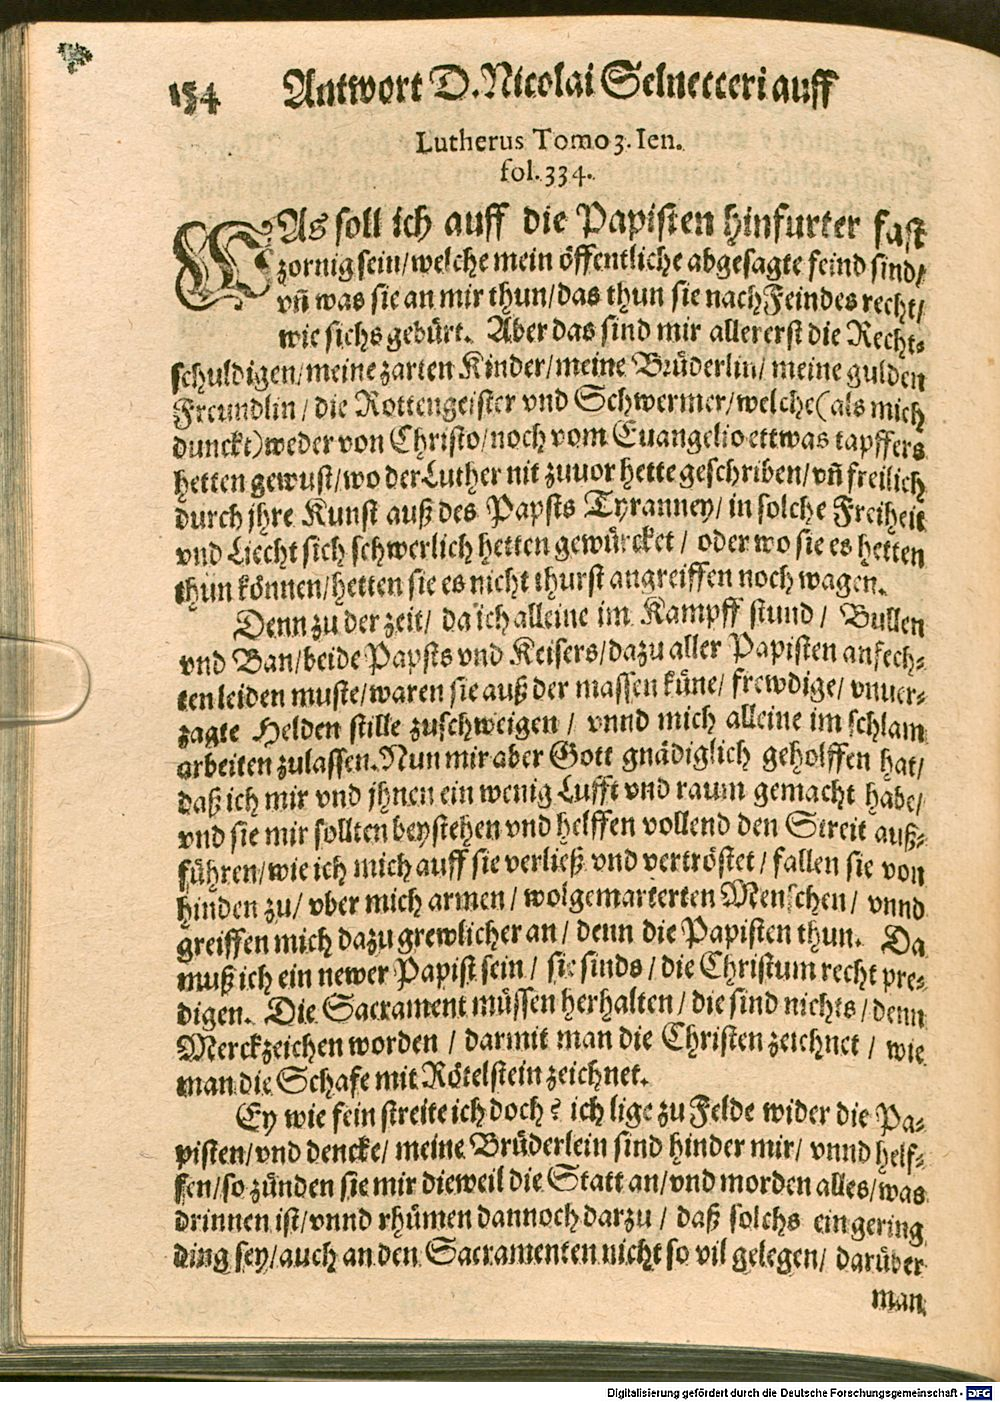 154 Antwort D. Nicolai Selnecceri auff
Lutherus Tomo 3. Ien.
fol. 334.
WAs soll ich auff die Papisten hinfurter fast
zornig sein/ welche mein öffentliche abgesagte feind sind/
vñ was sie an mir thun/ das thun sie nach Feindes recht/
wie sichs gebürt. Aber das sind mir allererst die Recht⸗
schuldigen/ meine zarten Kinder/ meine Brüderlin/ meine gulden
Freundlin/ die Rottengeister vnd Schwermer/ welche (als mich
dunckt) weder von Christo/ noch vom Euangelio ettwas tapffers
hetten gewust/ wo der Luther nit zuuor hette geschriben/ vñ freilich
durch jhre Kunst auß des Papsts Tyranney/ in solche Freiheit
vnd Liecht sich schwerlich hetten gewürcket/ oder wo sie es hetten
thun können/ hetten sie es nicht thurst angreiffen noch wagen.
Denn zu der zeit/ da ich alleine im Kampff stund/ Bullen
vnd Ban/ beide Papsts vnd Keisers/ dazu aller Papisten anfech⸗
ten leiden muste/ waren sie auß der massen küne/ frewdige/ vnuer⸗
zagte Helden stille zuschweigen/ vnnd mich alleine im schlam
arbeiten zulassen. Nun mir aber Gott gnädiglich geholffen hat/
daß ich mir vnd jhnen ein wenig Lufft vnd raum gemacht habe/
vnd sie mir sollten beystehen vnd helffen vollend den Streit auß⸗
führen/ wie ich mich auff sie verließ vnd vertröstet/ fallen sie von
hinden zu/ vber mich armen/ wolgemarterten Menschen/ vnnd
greiffen mich dazu grewlicher an/ denn die Papisten thun. Da
muß ich ein newer Papist sein/ sie sinds/ die Christum recht pre⸗
digen. Die Sacrament müssen herhalten/ die sind nichts/ denn
Merckzeichen worden/ darmit man die Christen zeichnet/ wie
man die Schafe mit Rötelstein zeichnet.
Ey wie fein streite ich doch? ich lige zu Felde wider die Pa⸗
pisten/ vnd dencke/ meine Brüderlein sind hinder mir/ vnnd helf⸗
fen/ so zünden sie mir dieweil die Statt an/ vnd morden alles/ was
drinnen ist/ vnnd rhümen dannoch darzu/ daß solchs ein gering
ding sey/ auch an den Sacramenten nicht so vil gelegen/ darüber
man
Digitalisierung gefördert durch die Deutsche Forschungsgemeinschaft - DFG